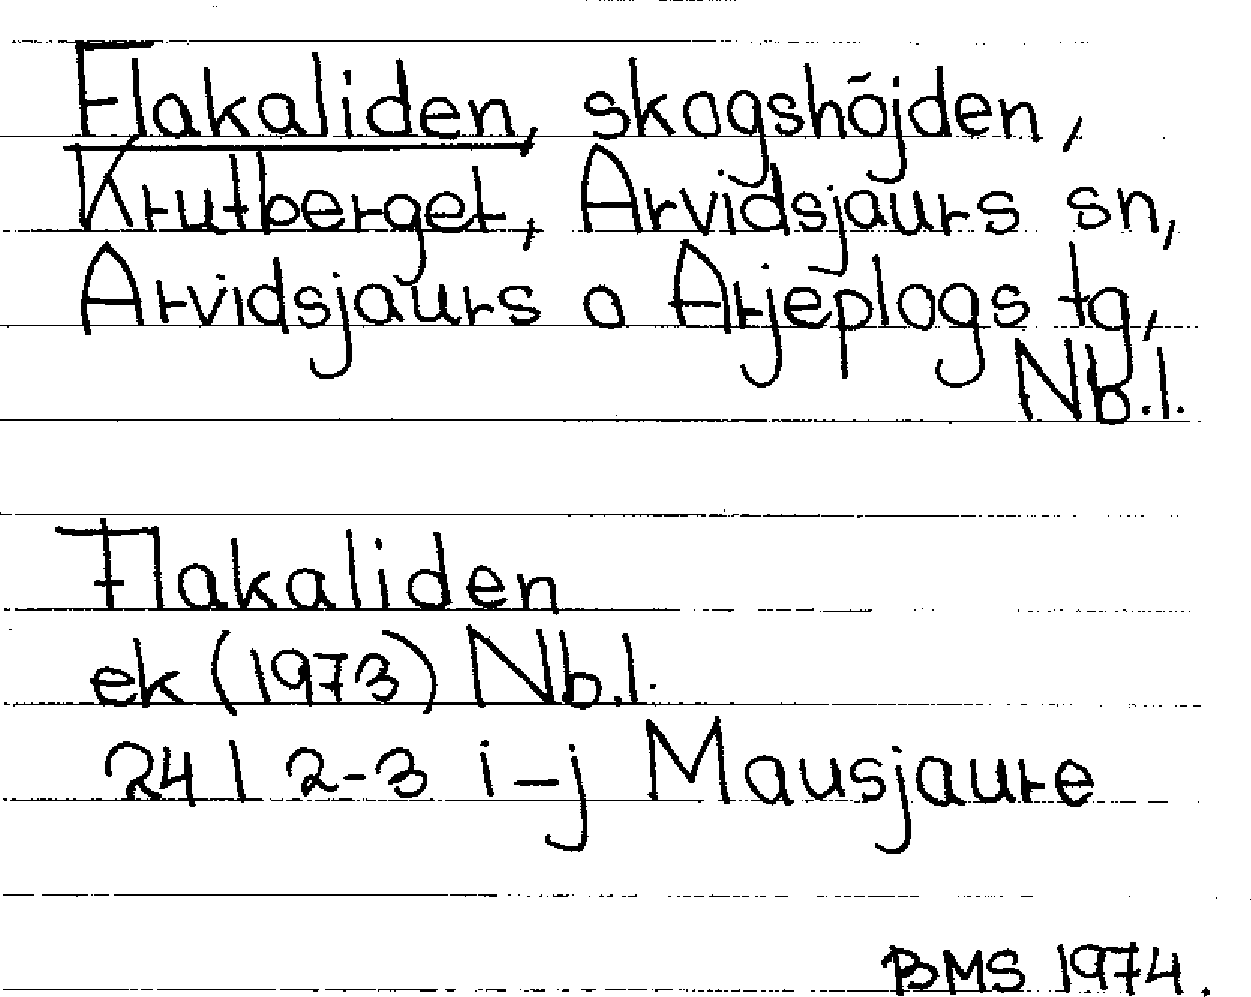 Flakaliden, skogshöjden,
Krutberget, Arvidsjaurs sn,
Arvidsjaurs o Arjeplogs tg,
Nb.l.
Flakaliden
ek (1973) Nb.l.
24 I 2-3 i-j Mausjaure
BMS 1974.